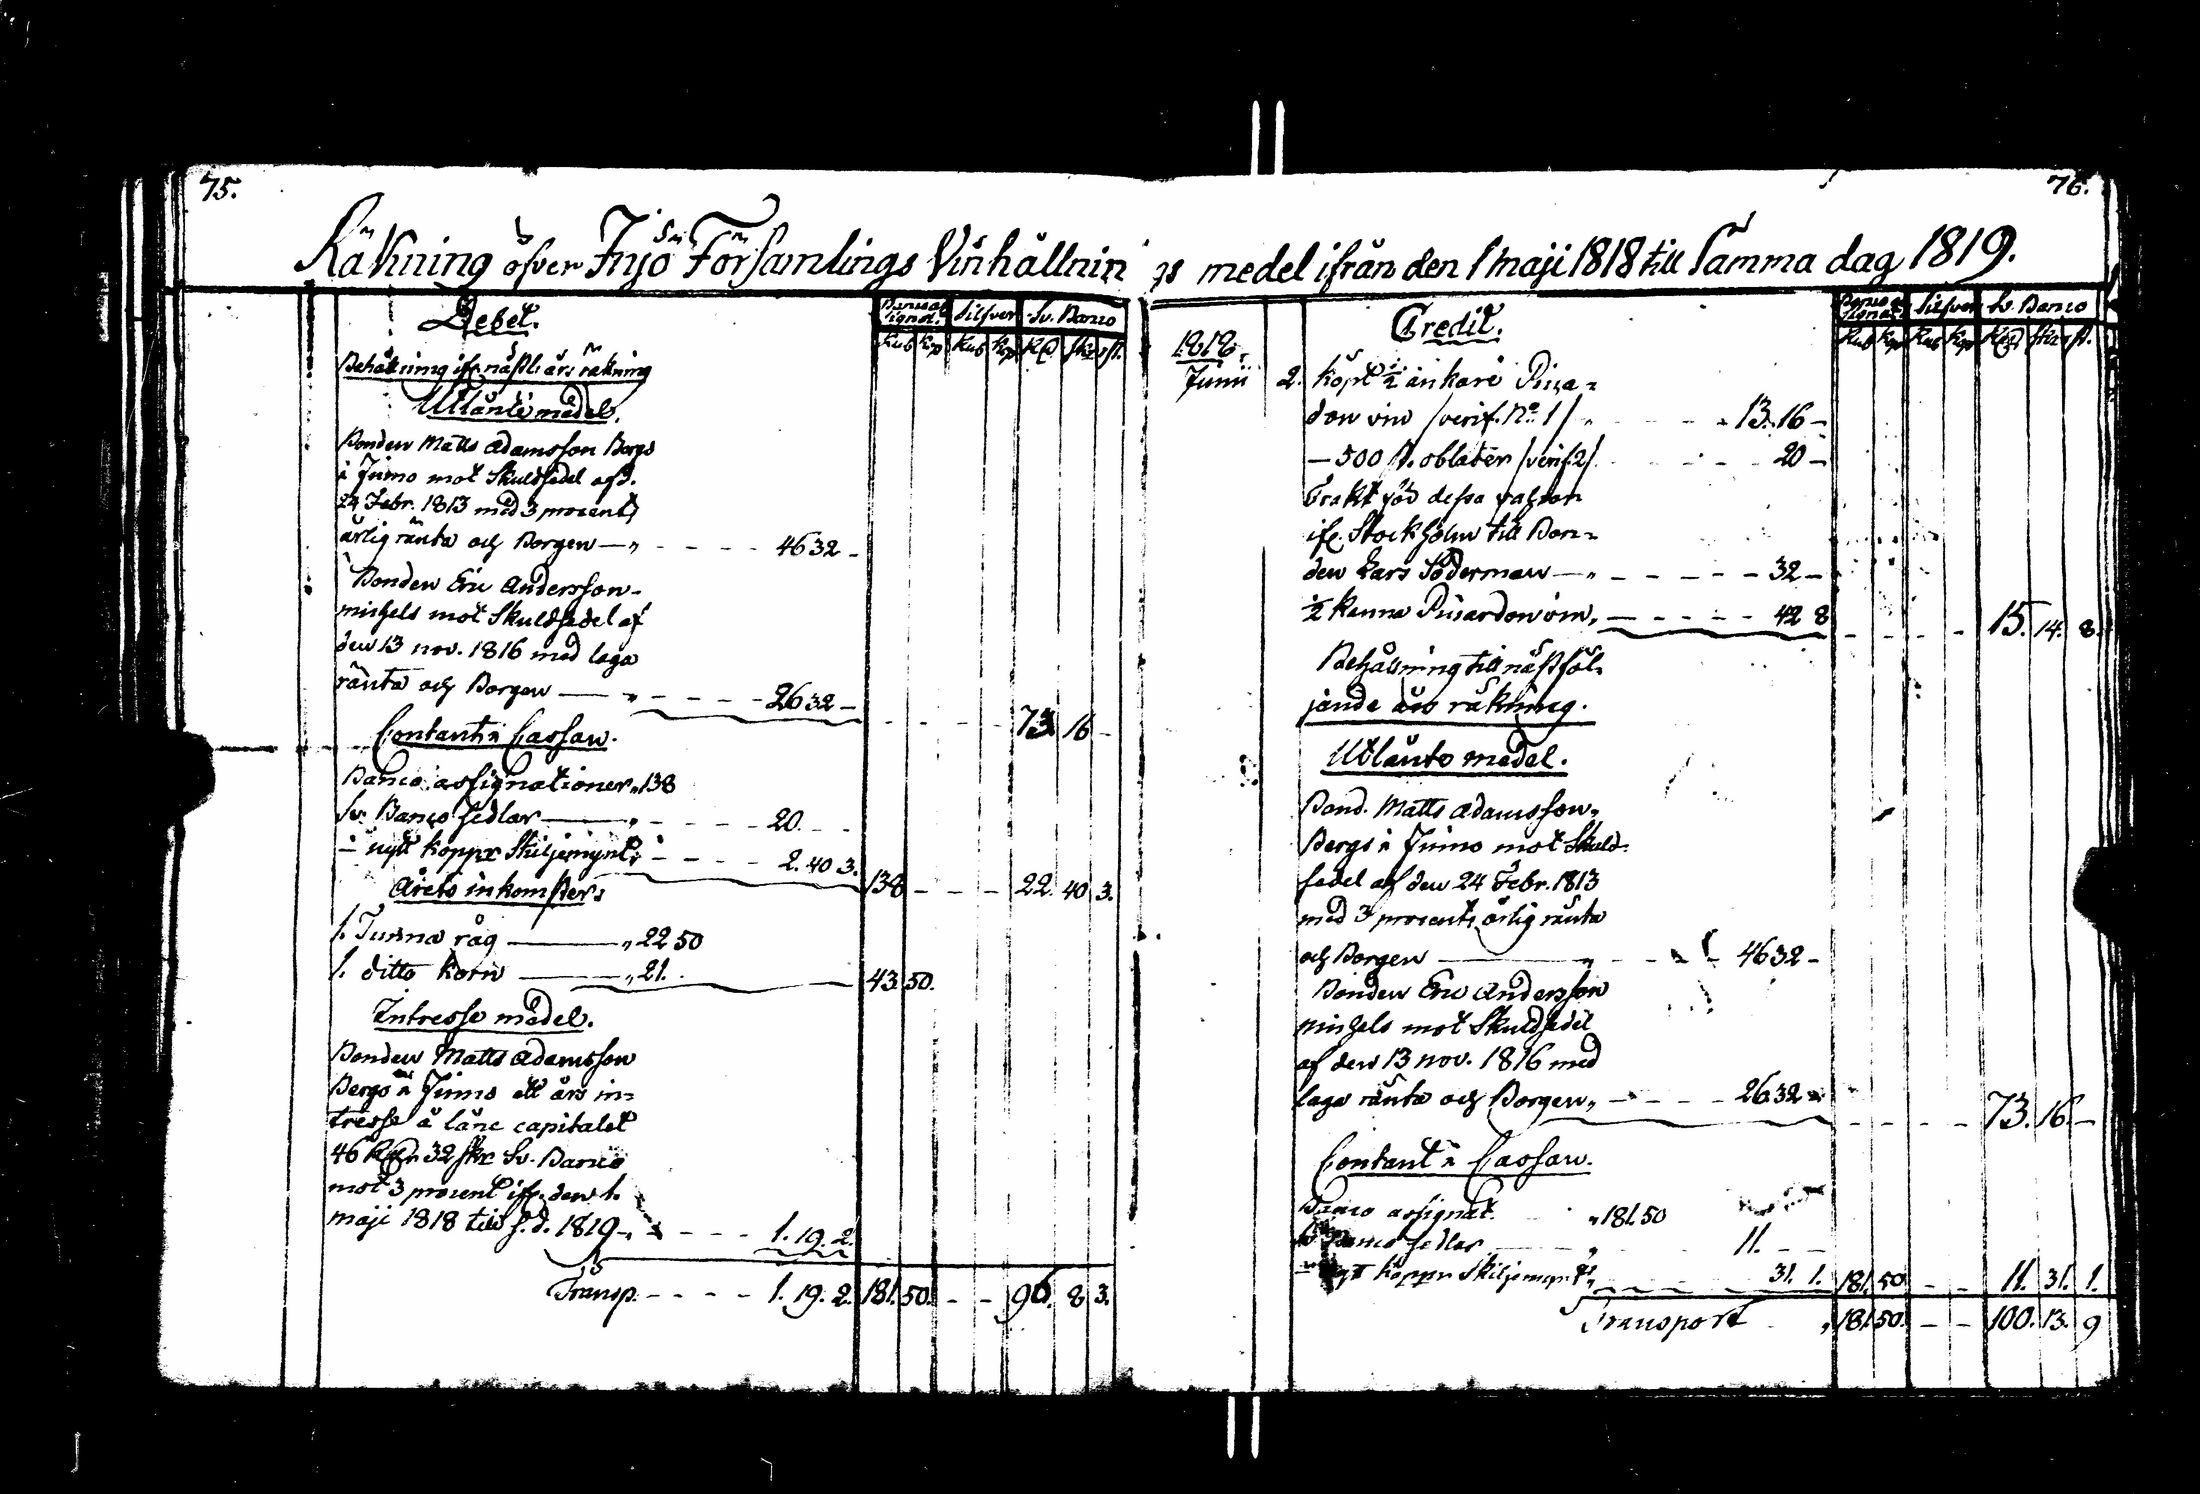 75.
76.
Räkning öfver Injö Församlings Vinhållnings medel ifrån den 1 maji 1818 till samma dag 1819.
Debet.
Banco assignat. Silfver Sv. Banco
Rub kop Rub kop Rd sk. st.
Behållning ifr. näßl. års räkning
Utlänte medel.
Bonden Matts Adamsson Bergs
i Jumo mot Skuldsedel af d.
24 Febr. 1813 med 3 procents
årlig ränta och Borgen — „ - - - - 46 32 -
Bonden Eric Andersson
michels mot Skuldsedel af
den 13 nov. 1816 med laga
ränta och Borgen — „ - - - - 26 32 - - - - - 73 16 -
Contant i Cassan.
Banco assignationer „ 138
Sv. Banco sedlar — „ - - - - 20. - -
— nytt koppr Skiljemynt „ - - - - 2. 40 3. 138 - - - 22. 40 3.
Årets inkomster
1. Tunna råg — „ 22 50
1. ditto korn — „ 21. — 43. 50.
Intresse medel.
Bonden Matts Adamsson
Bergs i Jumo ett års in=
tresse å låne capitalet
46 Rdr 32 skr Sv. Banco
mot 3 procent ifr. den 1.
maji 1818 till s. d. 1819 - „ - - - - 1. 19. 2.
Transp. - - - - 1. 19. 2. 181. 50. - - 96. 8 3.
Credit.
Banco assignat. Silfver Sv. Banco
Rub kop Rub kop Rd skr st.
1818.
Junii 2. köpt ½ ankare Picca=
don vin /verif. No 1/ „ - - - - 13. 16 -
— 500 st. oblater /verif. 2/ - - - - 20 -
Frakt för dessa
ifr. Stockholm till Bon=
den Lars Söderman — „ - - - - 32 -
½ kanna Piccardon vin „ - - - - 42 8 - - - - 15. 14. 8.
Behållning till näßtföl=
jande års räkning.
Utlänte medel.
Bond. Matts Adamsson
Bergs i Jumo mot Skuld=
sedel af den 24 Febr. 1813
med 3 procents årlig ränta
och Borgen — „ - - - 46 32 -
Bonden Eric Andersson
michels mot Skuldsedel
af den 13 nov. 1816 med
laga ränta och Borgen „ - - - - 26 32 - - - - - 73. 16. -
Contant i Cassan.
Banco assignat. „ 181. 50
Sv. Banco sedlar — „ 11. - -
— nytt koppr Skiljemynt „ - - - - 31. 1. 181. 50 - - 11. 31. 1.
Transport „ 181. 50. - - 100. 13. 9